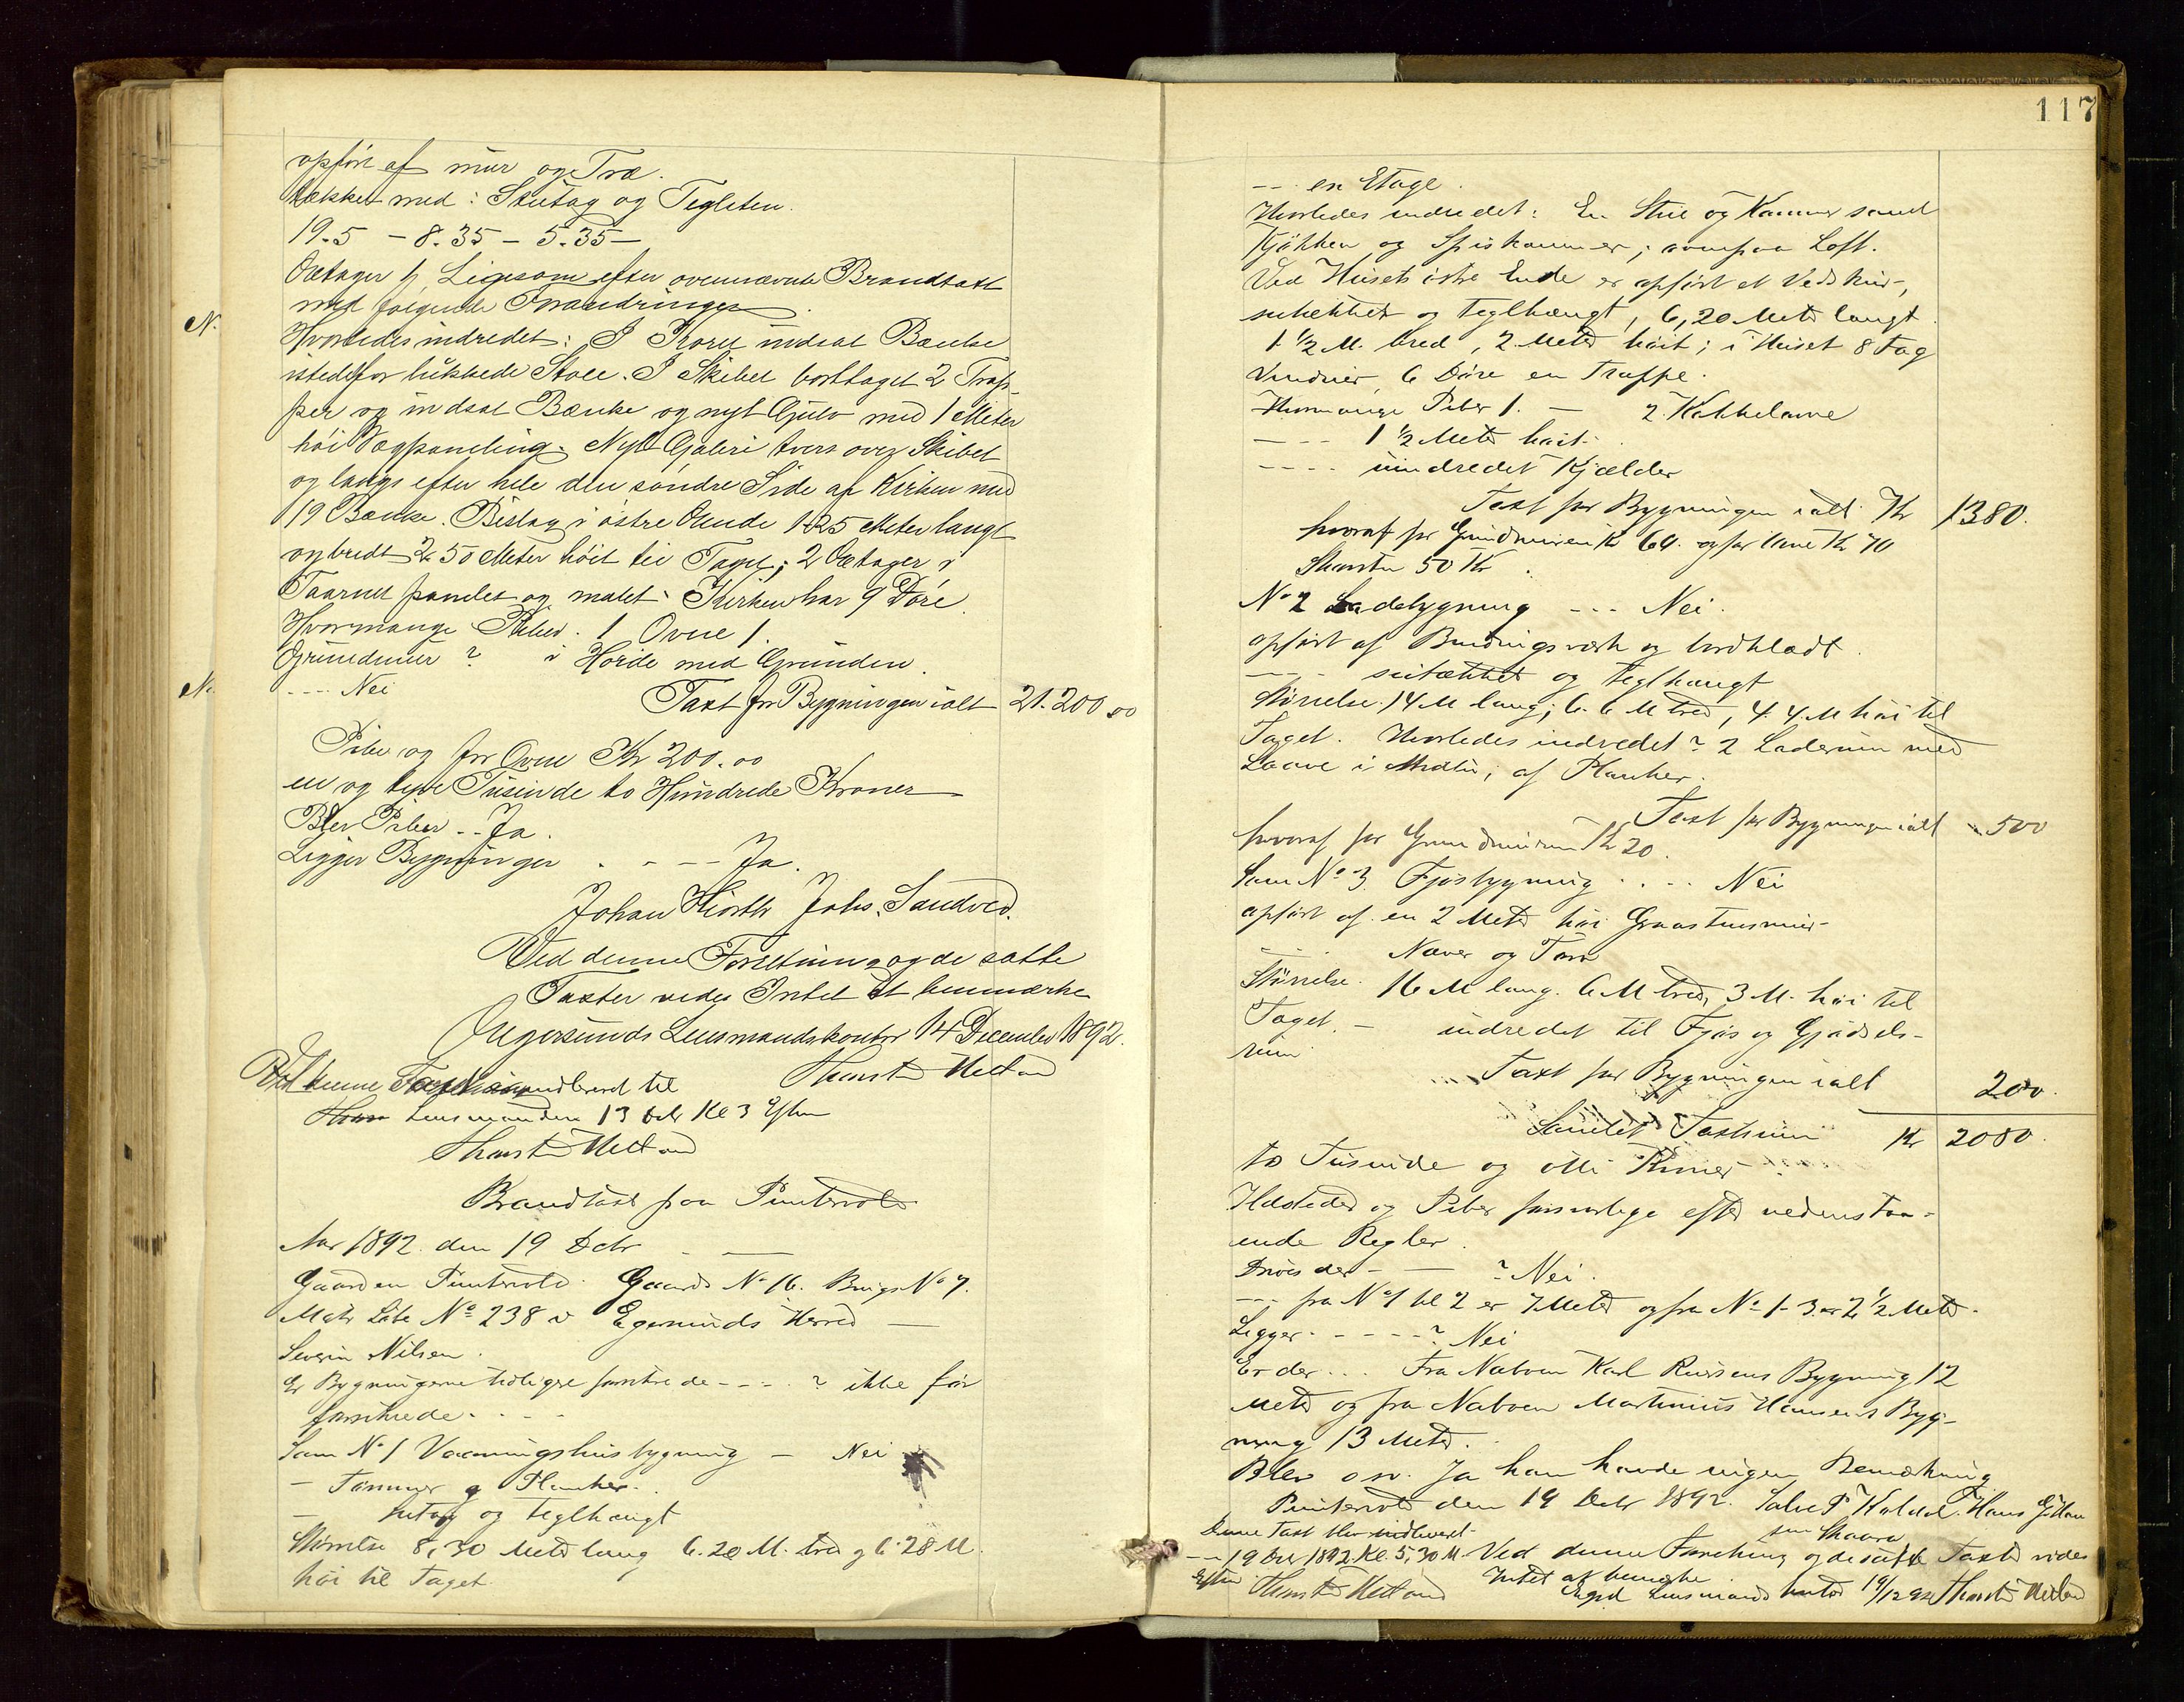 opført af mur og Træ.
tækket med: Skutag og Teglsten.
19.5 - 8.35 - 5.35 -
Ætager 1, Ligesom efter ovennævnte Brandtaxt
med følgende Forandringer.
Hvorledes indredet: I Koret indsat Bænke
istedetfor lukkede Stole. I Skibet borttaget 2 Trap-
per og indsat Bænke og nyt Gulv med 1 Meter
høi Vægpaneling. Nyt Galeri tvers over Skibet
og langs efter hele den søndre Side af Kirken med
19 Bænke. Bislag i østre Ende 1.25 Meter langt
og bredt 2.50 Meter høit til Taget; 2 Ætager i
Taarnet panelet og malet. Kirken har 9 Døre.
Hvormange Piber. 1 Ovne 1.
Grundmur ? i Høide med Grunden.
---- Nei
Taxt for Bygningen ialt 21.200,00
Pibe og for Ovne Kr 200.00
en og tyve Tusinde to Hundrede Kroner
Blev Piber -- Ja.
Ligger Bygninger . - -- Ja.
Johan Hiorth Johs. Sandved.
Ved denne Forretning og de satte
Taxter vides Intet at bemærke
Egersunds Lensmandskontor 14 December 1892.
Thorst. Hetland
Ved denne indleveret til
Lensmanden 13 Dcbr Kl 3 Efterm
Thorst. Hetland
Brandtaxt paa Puntervold
Aar 1892 den 19 Dcbr - —
Gaarden Puntervold. Gaards No 16. Brugs No 7.
Matr Løbe No 238 i Egersunds Herred —
Severin Nilsen.
Er Bygningerne tidligere forsikrede - - - - ? ikke før
forsikrede. - - -
Som No 1 Vaaningshusbygning — Nei
- Tømmer og Planker.
- sutag og teglhængt
Størrelse 8,30 Meter lang 6.20 M. bred og 6.28 M.
høi til Taget.
117
--- en Etage.
Hvorledes indredet: En Stue og Kammer samt
Kjøkken og Spiskammer; ovenpaa Loft.
Ved Husets østre Ende er opført et Vedskur,
sutækket og teglhængt, 6,20 Meter langt
1 ½ M. bred, 2 Meter høit; i Huset 8 Fag
Vinduer, 6 Døre en Trappe.
Hvormange Piber 1. — 2 Kakkelovne
- - - 1 ½ Meter høit.
- - - - uindredet Kjælder
Taxt for Bygningen ialt Kr 1380.
hvoraf for Grundmuren Kr 60. og for Ovne Kr 70
Skorsten 50 Kr.
No 2 Ladebygning --- Nei.
opført af Bindingsværk og bordklædt.
- - - sutækket og teglhængt
Størrelse. 14 M lang; 6.6 M bred, 4.4 M høi til
Taget. Hvorledes indredet? 2 Laderum med
Laave i Midten; af Planker.
Taxt for Bygningen ialt - 500
hvoraf for Grundmuren Kr 20.
Som No 3. Fjøsbygning . . - . Nei
opført af en 2 Meter høi Graastensmur
- - . Næver og Torv
Størrelse. 16 M lang. 6 M bred, 3 M. høi til
Taget. — indredet til Fjøs og Gjødsels-
rum
Taxt for Bygningen ialt 200.
Samlet Taxtsum Kr 2080.
to Tusinde og otti Kroner
Ildsteder og Piber forsvarlige efter nedenstaa-
ende Regler.
Drives der - — ? Nei.
--- fra No 1 til 2 er 7 Meter og fra No 1-3 er 2 ½ Meter.
Ligger - - - - ? Nei
Er der ... Fra Naboen Karl Bygning 12
Meter og fra Naboen Martinius Hansens Byg-
ning 13 Meter.
Blev osv. Ja han havde ingen Bemærkning
Puntervold den 19 Dcbr 1892. Salve P Hans
Denne Taxt blev indleveret
--- 19 Dcbr 1892 Kl. 5,30 M Ved denne Forretning og de satte Taxter vides
Efter. Thorst. Hetland Intet at bemærke
Egsd Lensmands kontor 19/12 92 Thorst. Hetland